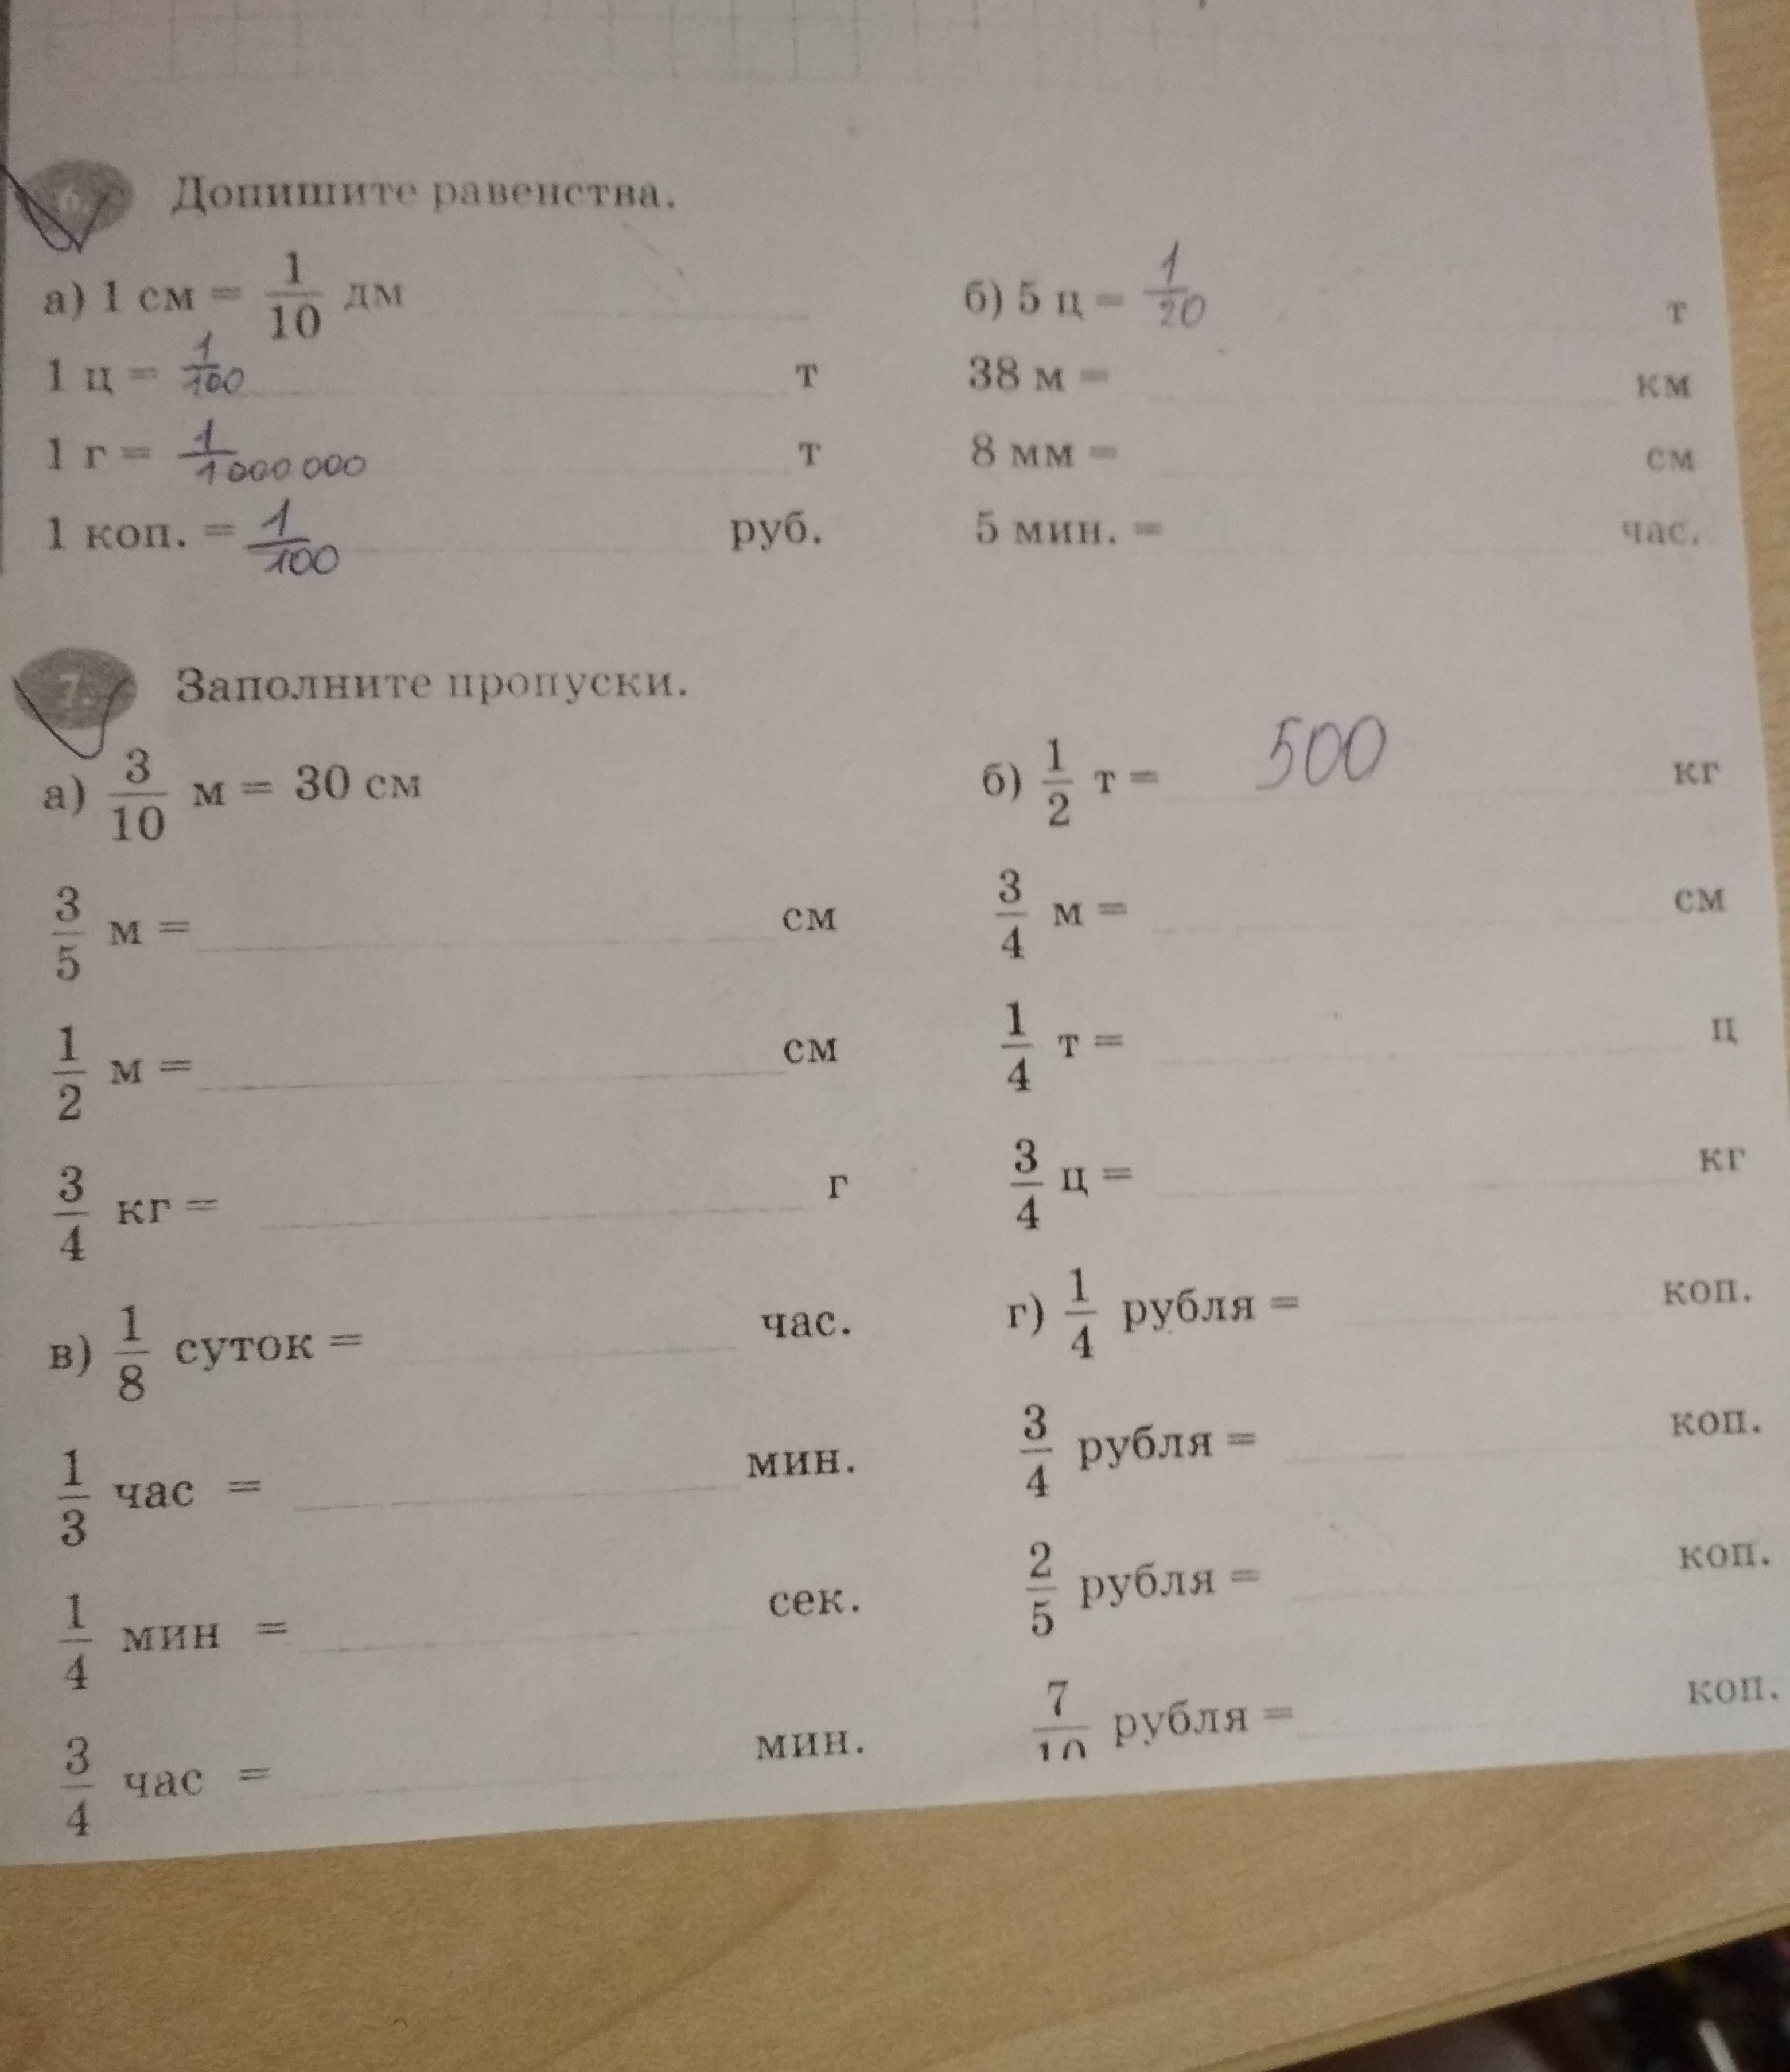 6. Допишите равенства.
а) 1 см = 1/10 дм
1 ц = 1/100 т
1 г = 1/1000 000 т
1 коп. = 1/100 руб.
б) 5 ц = 1/20 т
38 м = км
8 мм = см
5 мин. = час.
7. Заполните пропуски.
а) 3/10 м = 30 см
3/5 м = см
1/2 м = см
3/4 кг = г
б) 1/2 т = 500 кг
3/4 м = см
1/4 т = ц
3/4 ц = кг
в) 1/8 суток = час.
1/3 час = мин.
1/4 мин = сек.
3/4 час = мин.
г) 1/4 рубля = коп.
3/4 рубля = коп.
2/5 рубля = коп.
7/10 рубля = коп.